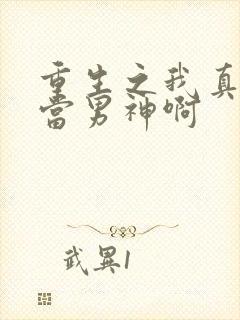 重生之我真
当男神啊
武異1